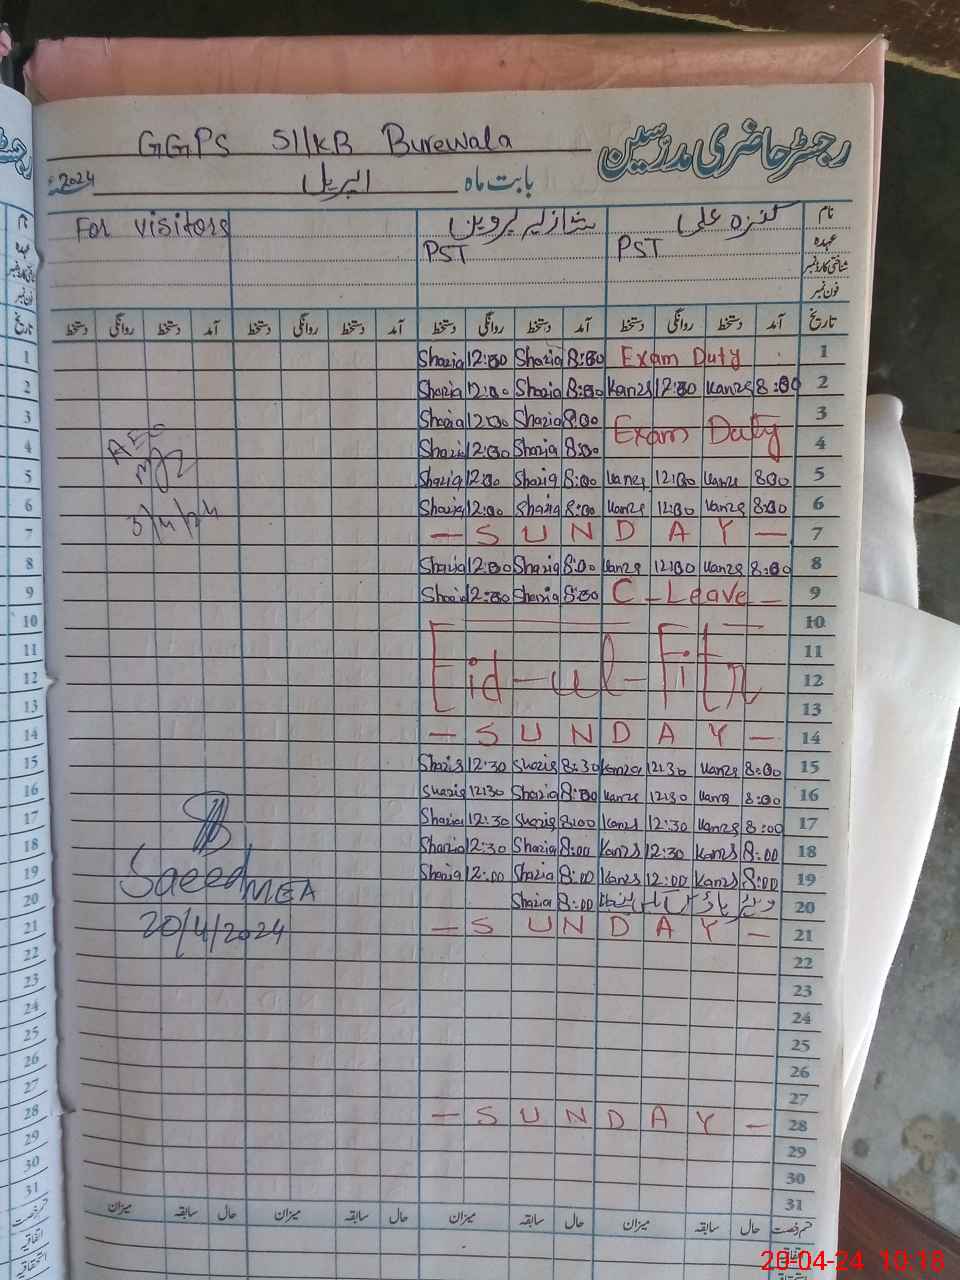 رجسٹر حاضری مدرسین
GGPS 511/KB Burewala
بابت ماہ اپریل 2024
نام کنزہ علی شازیہ پروین For visitors
عہدہ PST PST
شناختی کارڈ نمبر
فون نمبر
تاریخ آمد دستخط روانگی دستخط آمد دستخط روانگی دستخط آمد دستخط روانگی دستخط آمد دستخط روانگی دستخط
Shazia 12:00 Shazia 8:00 Exam Duty 1
Shazia 12:00 Shazia 8:00 Kanza 12:00 Kanza 8:00 2
Shazia 12:00 Shazia 8:00 3
Exam Duty
Shazia 12:00 Shazia 8:00 4
AEO
Shazia 12:00 Shazia 8:00 Kanza 12:00 Kanza 8:00 5
Shazia 12:00 Shazia 8:00 Kanza 12:00 Kanza 8:00 6
3/4/24
— S U N D A Y — 7
Shazia 12:00 Shazia 8:00 Kanza 12:00 Kanza 8:00 8
Shazia 12:00 Shazia 8:00 C - Leave - 9
10
11
Eid-ul-Fitr 12
13
— S U N D A Y — 14
Shazia 12:30 Shazia 8:30 Kanza 12:30 Kanza 8:00 15
Shazia 12:30 Shazia 8:00 Kanza 12:30 Kanza 8:00 16
Shazia 12:30 Shazia 8:00 Kanza 12:30 Kanza 8:00 17
Shazia 12:30 Shazia 8:00 Kanza 12:30 Kanza 8:00 18
Shazia 12:00 Shazia 8:00 Kanza 12:00 Kanza 8:00 19
Saeed MEA
Shazia 8:00 20
20/4/2024
— S U N D A Y — 21
22
23
24
25
26
27
— S U N D A Y — 28
29
30
31
قسم رخصت حال سابقہ میزان حال سابقہ میزان حال سابقہ میزان حال سابقہ میزان
اتفاقیہ
استحقاقیہ
20-04-24 10:18